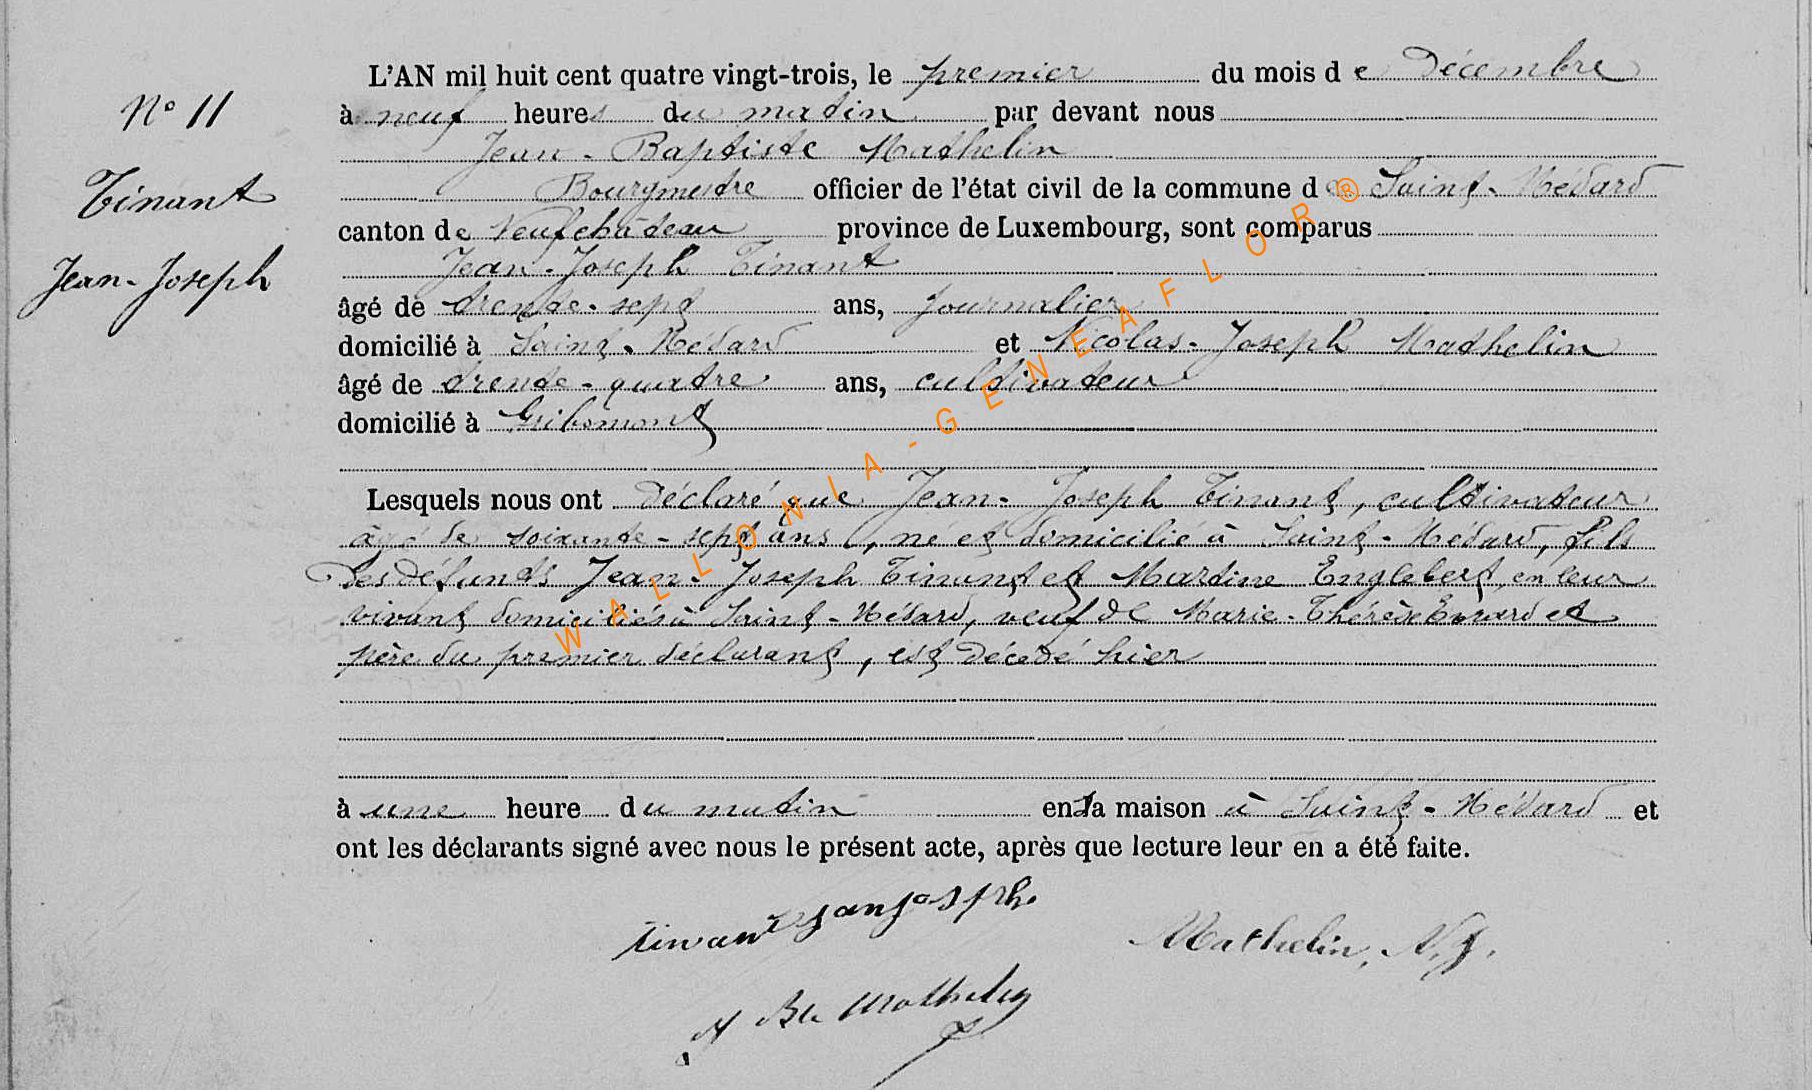 N° 11
Tinant
Jean-Joseph
L'AN mil huit cent quatre vingt-trois, le premier du mois de Décembre
à neuf heures du matin par devant nous
Jean-Baptiste Mathelin
Bourgmestre officier de l'état civil de la commune de Saint-Médard
canton de Neufchâteau province de Luxembourg, sont comparus
Jean-Joseph Tinant
âgé de trente-sept ans, Journalier
domicilié à Saint-Médard et Nicolas-Joseph Mathelin
âgé de trente-quatre ans, cultivateur
domicilié à Gribomont
Lesquels nous ont déclaré que Jean-Joseph Tinant, cultivateur
âgé de soixante-sept ans, né et domicilié à Saint-Médard, fils
des défunts Jean-Joseph Tinant et Martine Englebert, en leur
vivant domiciliés à Saint-Médard, veuf de Marie-Thérèse Evrard et
père du premier déclarant, est décédé hier
à une heure du matin en la maison à Saint-Médard et
ont les déclarants signé avec nous le présent acte, après que lecture leur en a été faite.
tinant janjosph
Mathelin, N. J.
J Bte Mathelin
WALLONIA-GENEAFLOR®